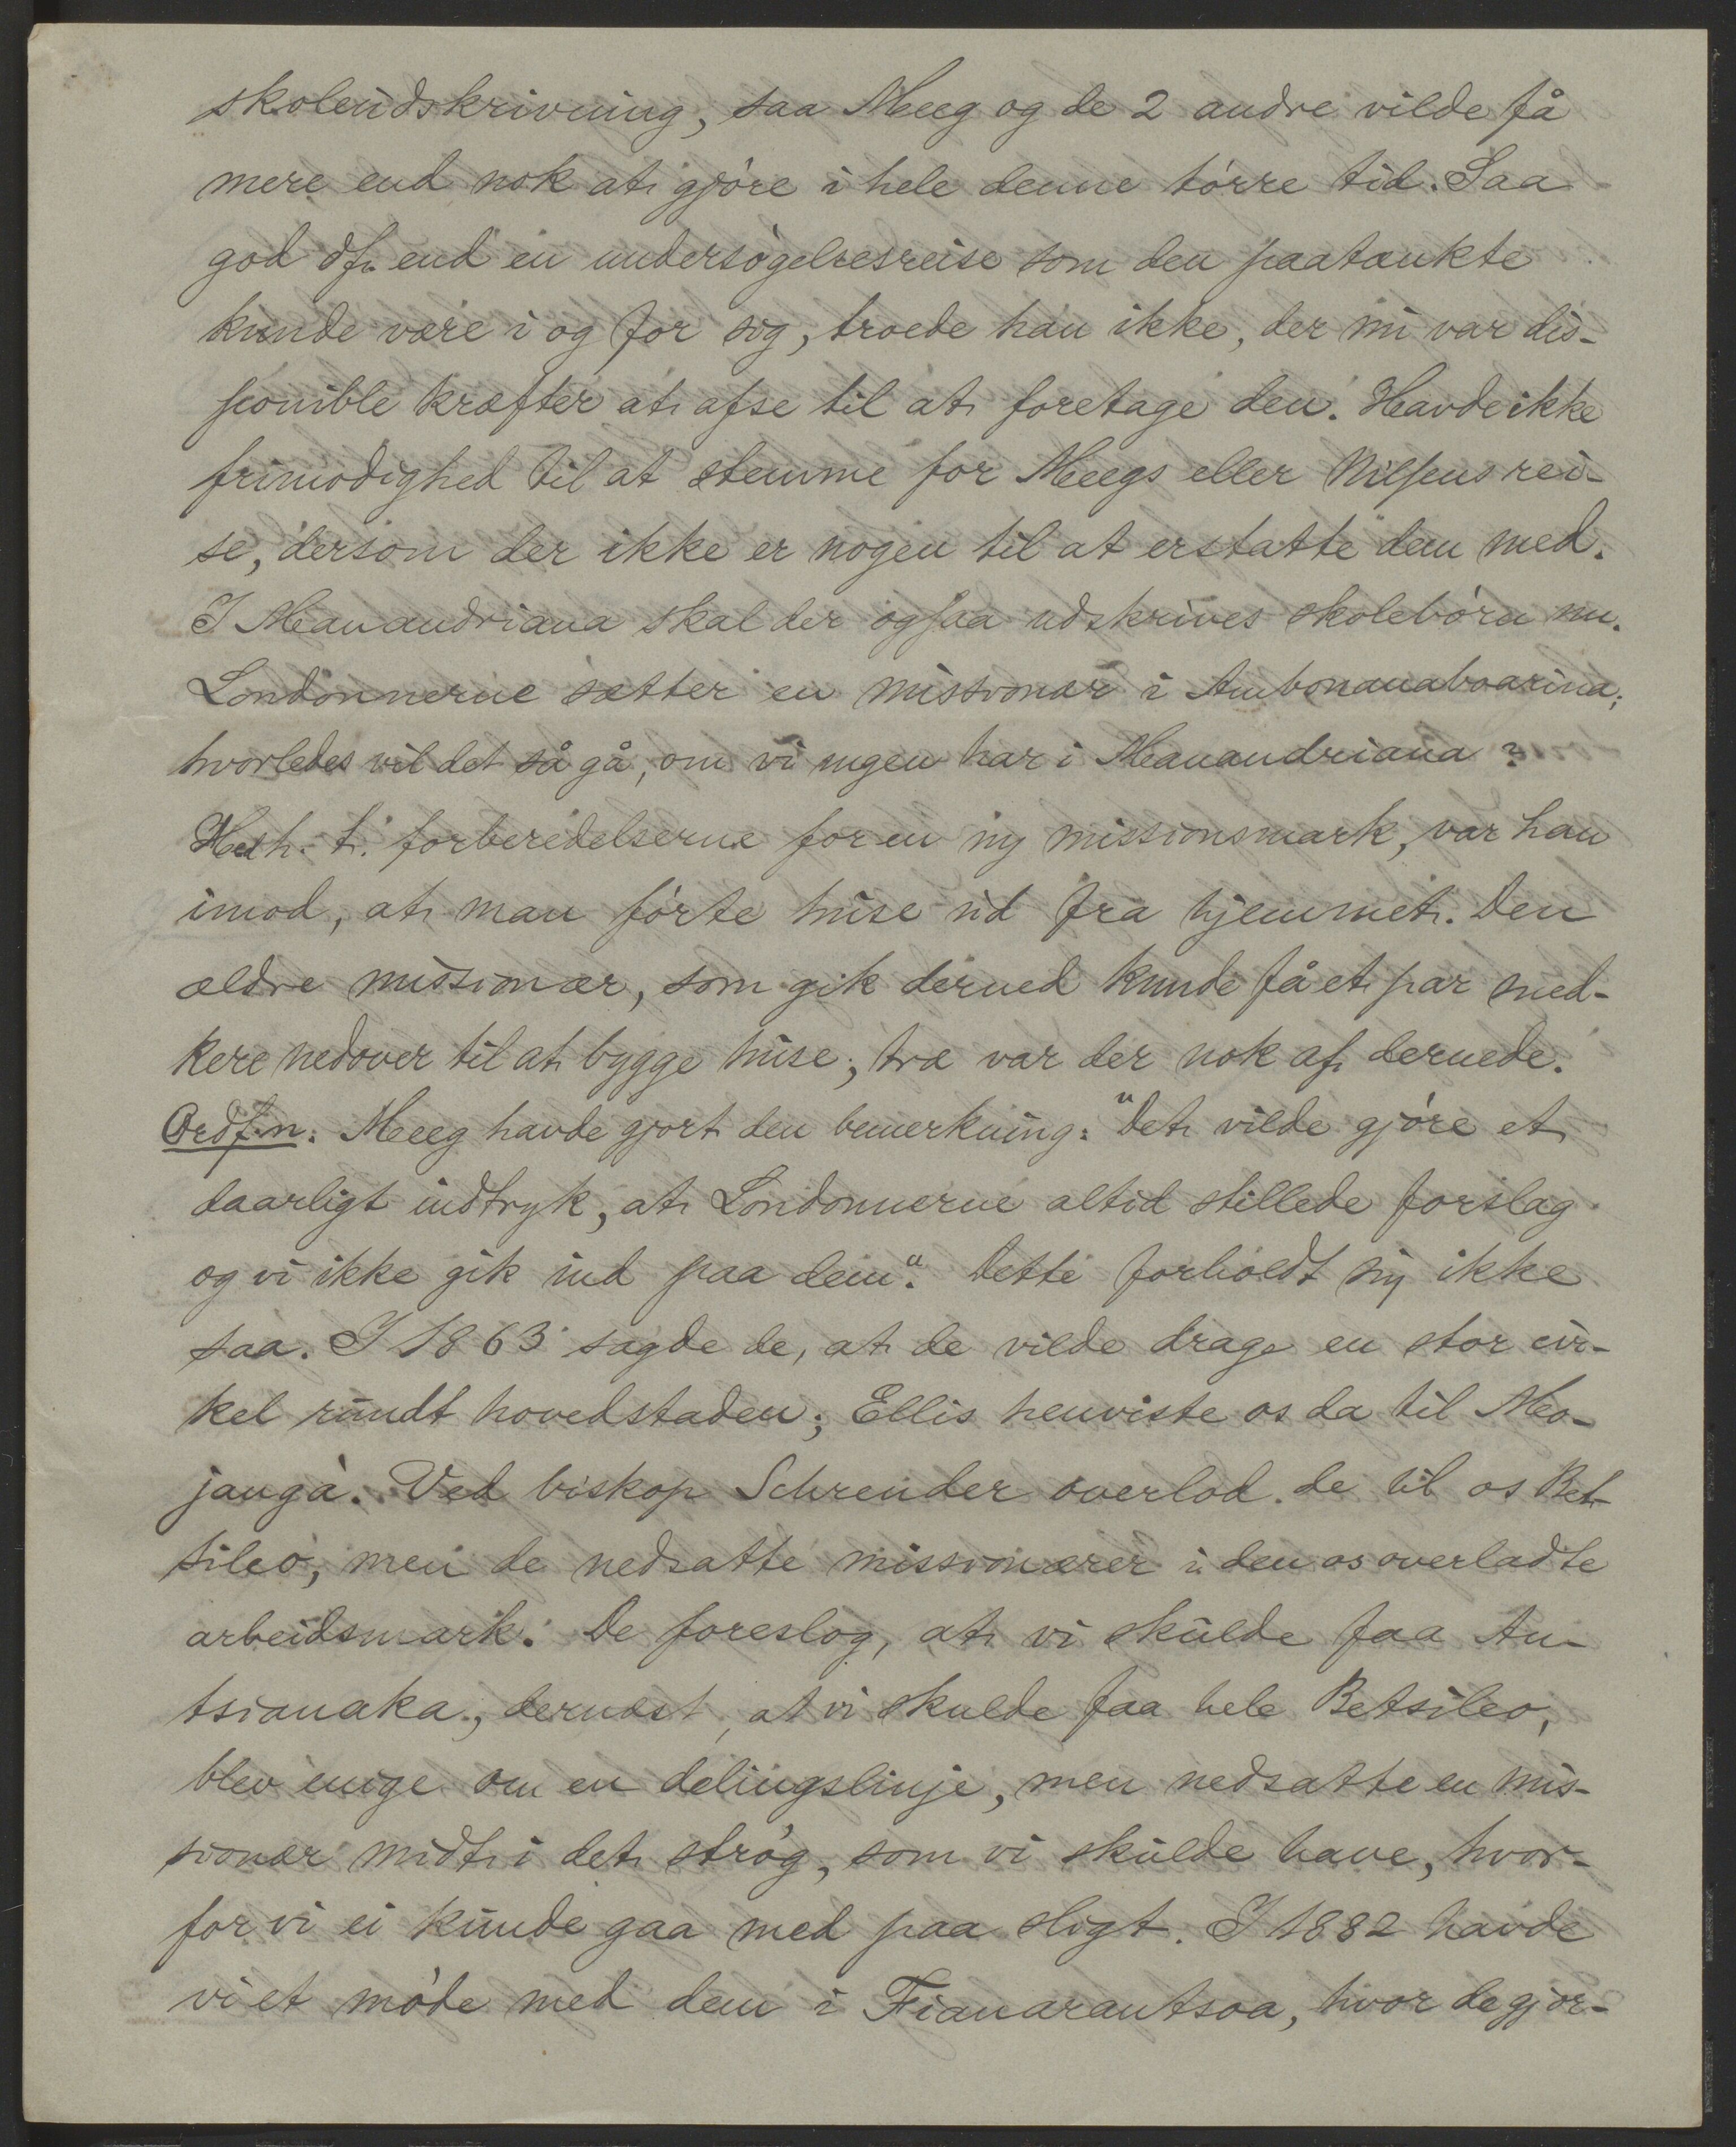 skoleudskrivning, saa Meeg og de 2 andre vilde få
mere end nok at gjøre i hele denne tørre tid. Saa
god dfr. end en undersøgelsesreise som den paatænkte
kunde være i og for sig, troede han ikke, der nu var dis-
ponible kræfter at afse til at foretage den. Havde ikke
frimodighed til at stemme for Meegs eller Nilsens rei-
se, dersom der ikke er nogen til at erstatte dem med.
I Manandriana skal der ogsaa udskrives skolebørn nu.
Londonnerne sætter en missionær i Ambonanaboarina;
hvorledes vil det så gå, om vi ingen har i Manandriana?
H.t. forberedelserne for en ny missionsmark, var han
imod, at man førte huse ud fra hjemmet. Den
ældre missionær, som gik derned kunde få et par sned-
kere nedover til at bygge huse; træ var der nok af dernede.
Ordf.n: Meeg havde gjort den bemerkning: "Det vilde gjøre et
daarligt indtryk, at Londonnerne altid stillede forslag
og vi ikke gik ind paa dem". Dette forholdt sig ikke
saa. I 1863 sagde de, at de vilde drage en stor cir-
kel rundt hovedstaden; Ellis henviste os da til Mo-
janga. Ved biskop Schreuder overlod de til os Bet-
sileo, men de nedsatte missionærer i den os overladte
arbeidsmark. De foreslog, at vi skulde faa An-
tsianaka, dernæst, at vi skulde faa hele Betsileo,
blev enige om en delingslinje, men nedsatte en mis-
sionær midt i det strøg, som vi skulde have, hvor-
for vi ei kunde gaa med paa sligt. I 1882 havde
vi et møde med dem i Fianarantsoa, hvor de gjor-